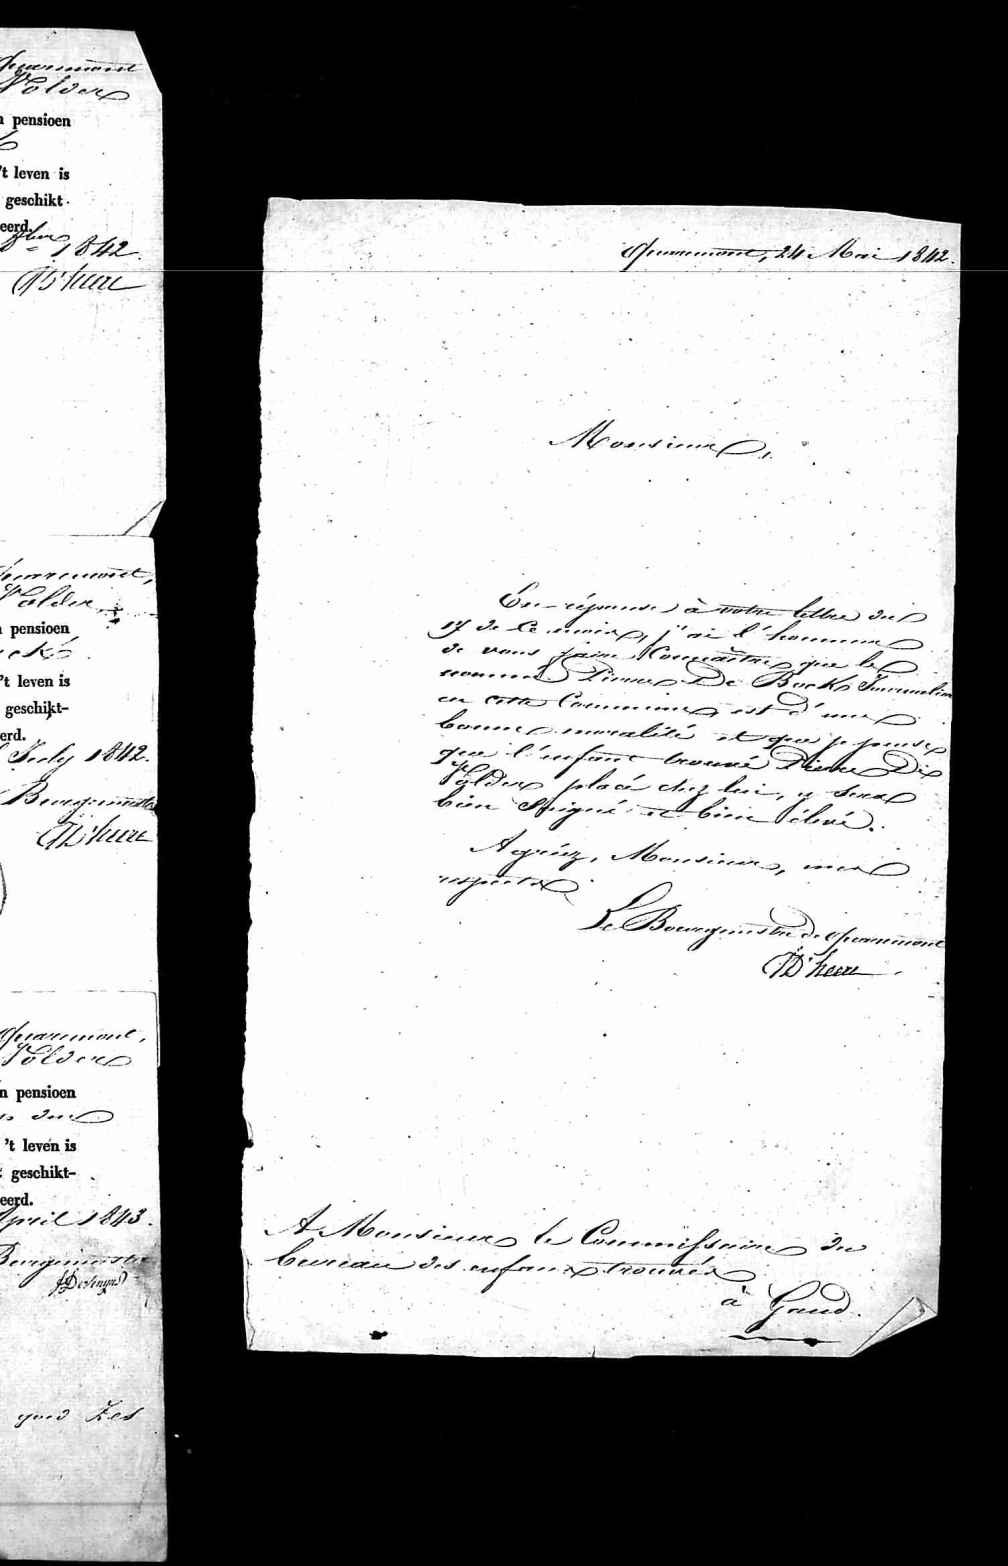 Quaremont
Volder
n pensioen
't leven is
geschikt
eerd.
8ber 1842.
D'heere
Quaremont,
Volder
n pensioen
't leven is
geschikt-
erd.
July 1842.
Bourgmestre
D'heere
Quaremont,
Volder
n pensioen
't leven is
geschikt-
eerd.
April 1843.
goed Zes
Quaremont, 24 Mai 1842.
Monsieur,
En réponse à votre lettre du
17 de ce mois, j'ai l'honneur
de vous faire Connaître que le
nommé Pierre De Bock Journalier
en cette Commune, est d'une
bonne moralité et que je pense
que l'enfant trouvé Pierre De
Volder placé chez lui, y sera
bien Soigné et bien élevé.
Agréez, Monsieur, mes
respects.
Le Bourgmestre de Quaremont
D'heere
A Monsieur le Commissaire du
bureau des enfans trouvés
à Gand.